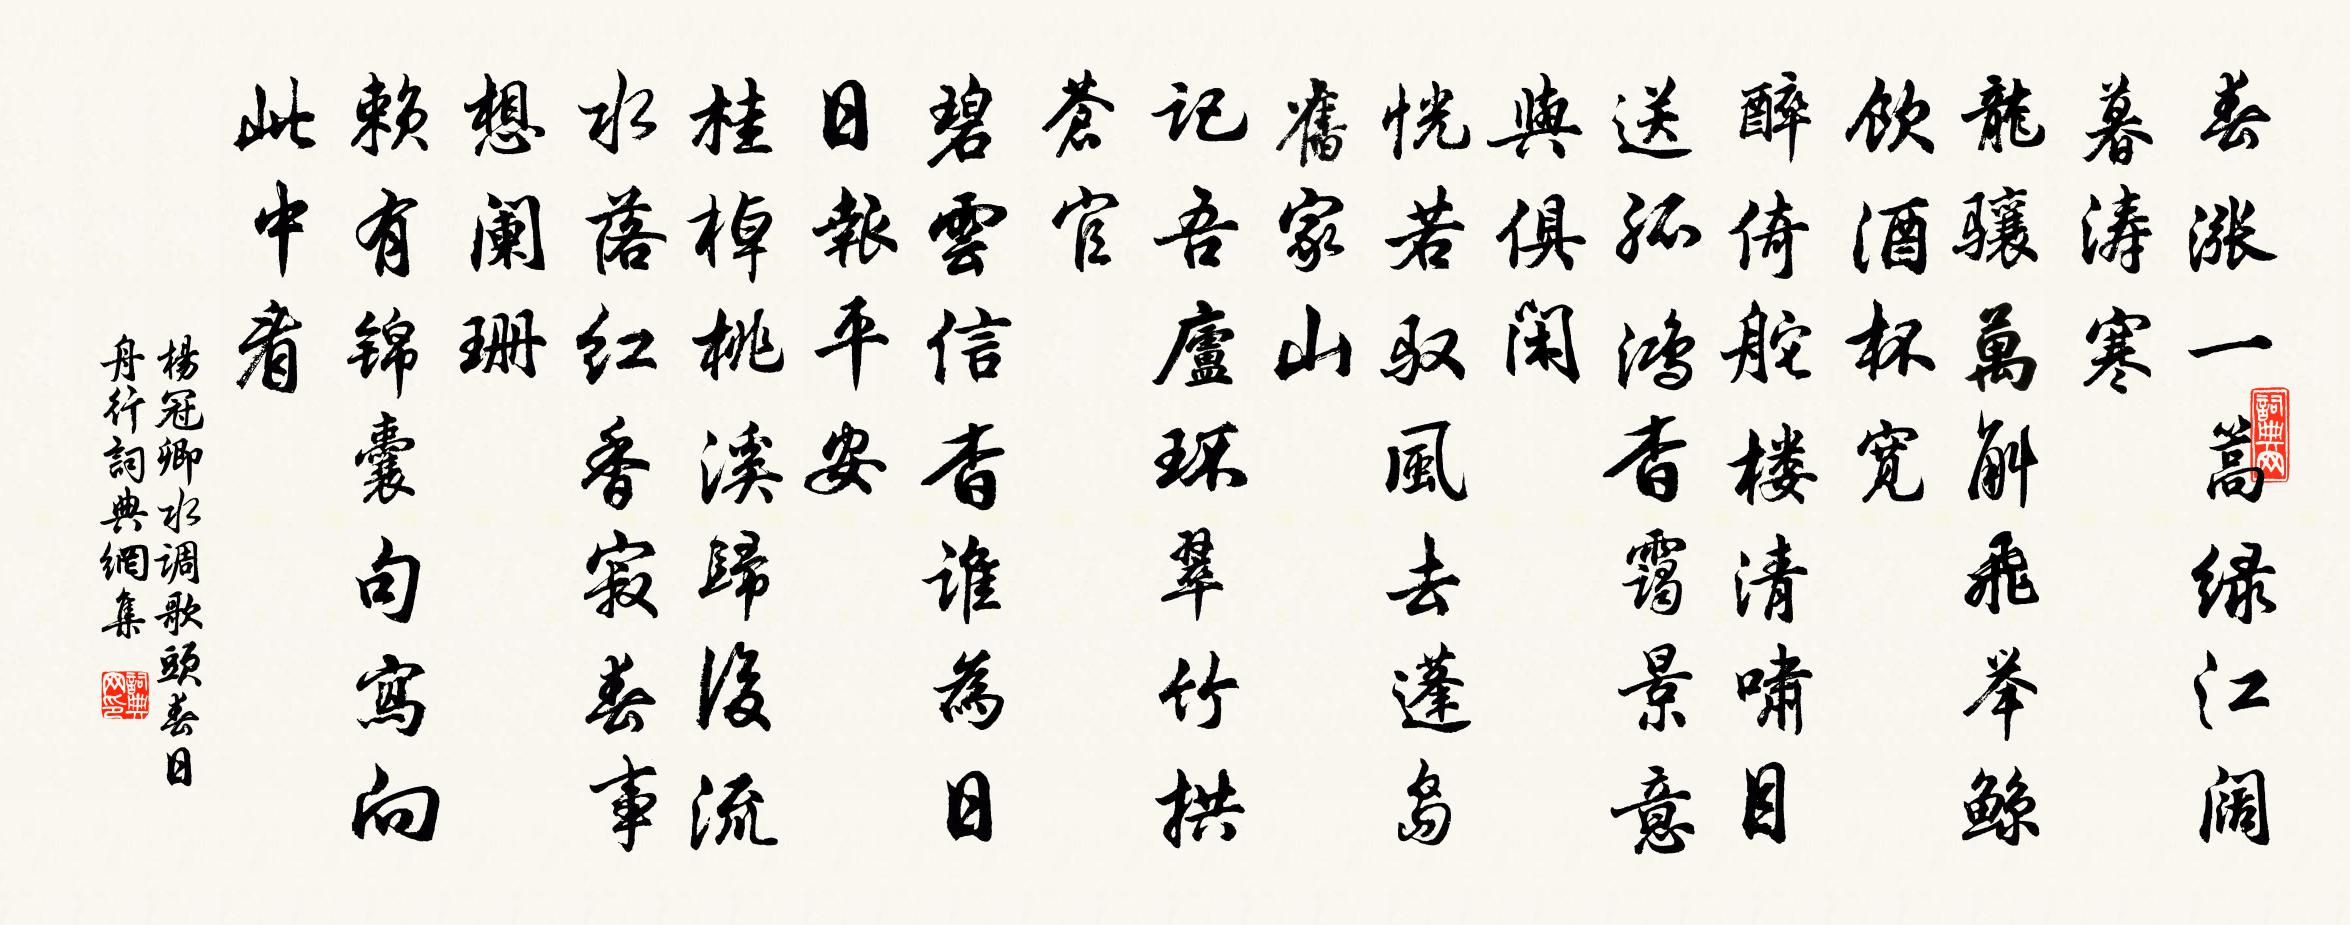 春漲一篙绿江阔
暮涛寒
龍骧萬斛飛举鲸
飲酒杯宽
醉倚舵楼清啸目
送孤鸿杳靄景意
與俱閑
恍若驭風去蓬岛
舊家山
記吾廬環翠竹拱
蒼官
碧雲信杳谁為日
日報平安
桂棹桃溪歸後流
水落红香寂春事
想阑珊
赖有锦囊句寫向
此中看
楊冠卿水调歌頭春日
舟行詞典網集
詞典网
詞典网印